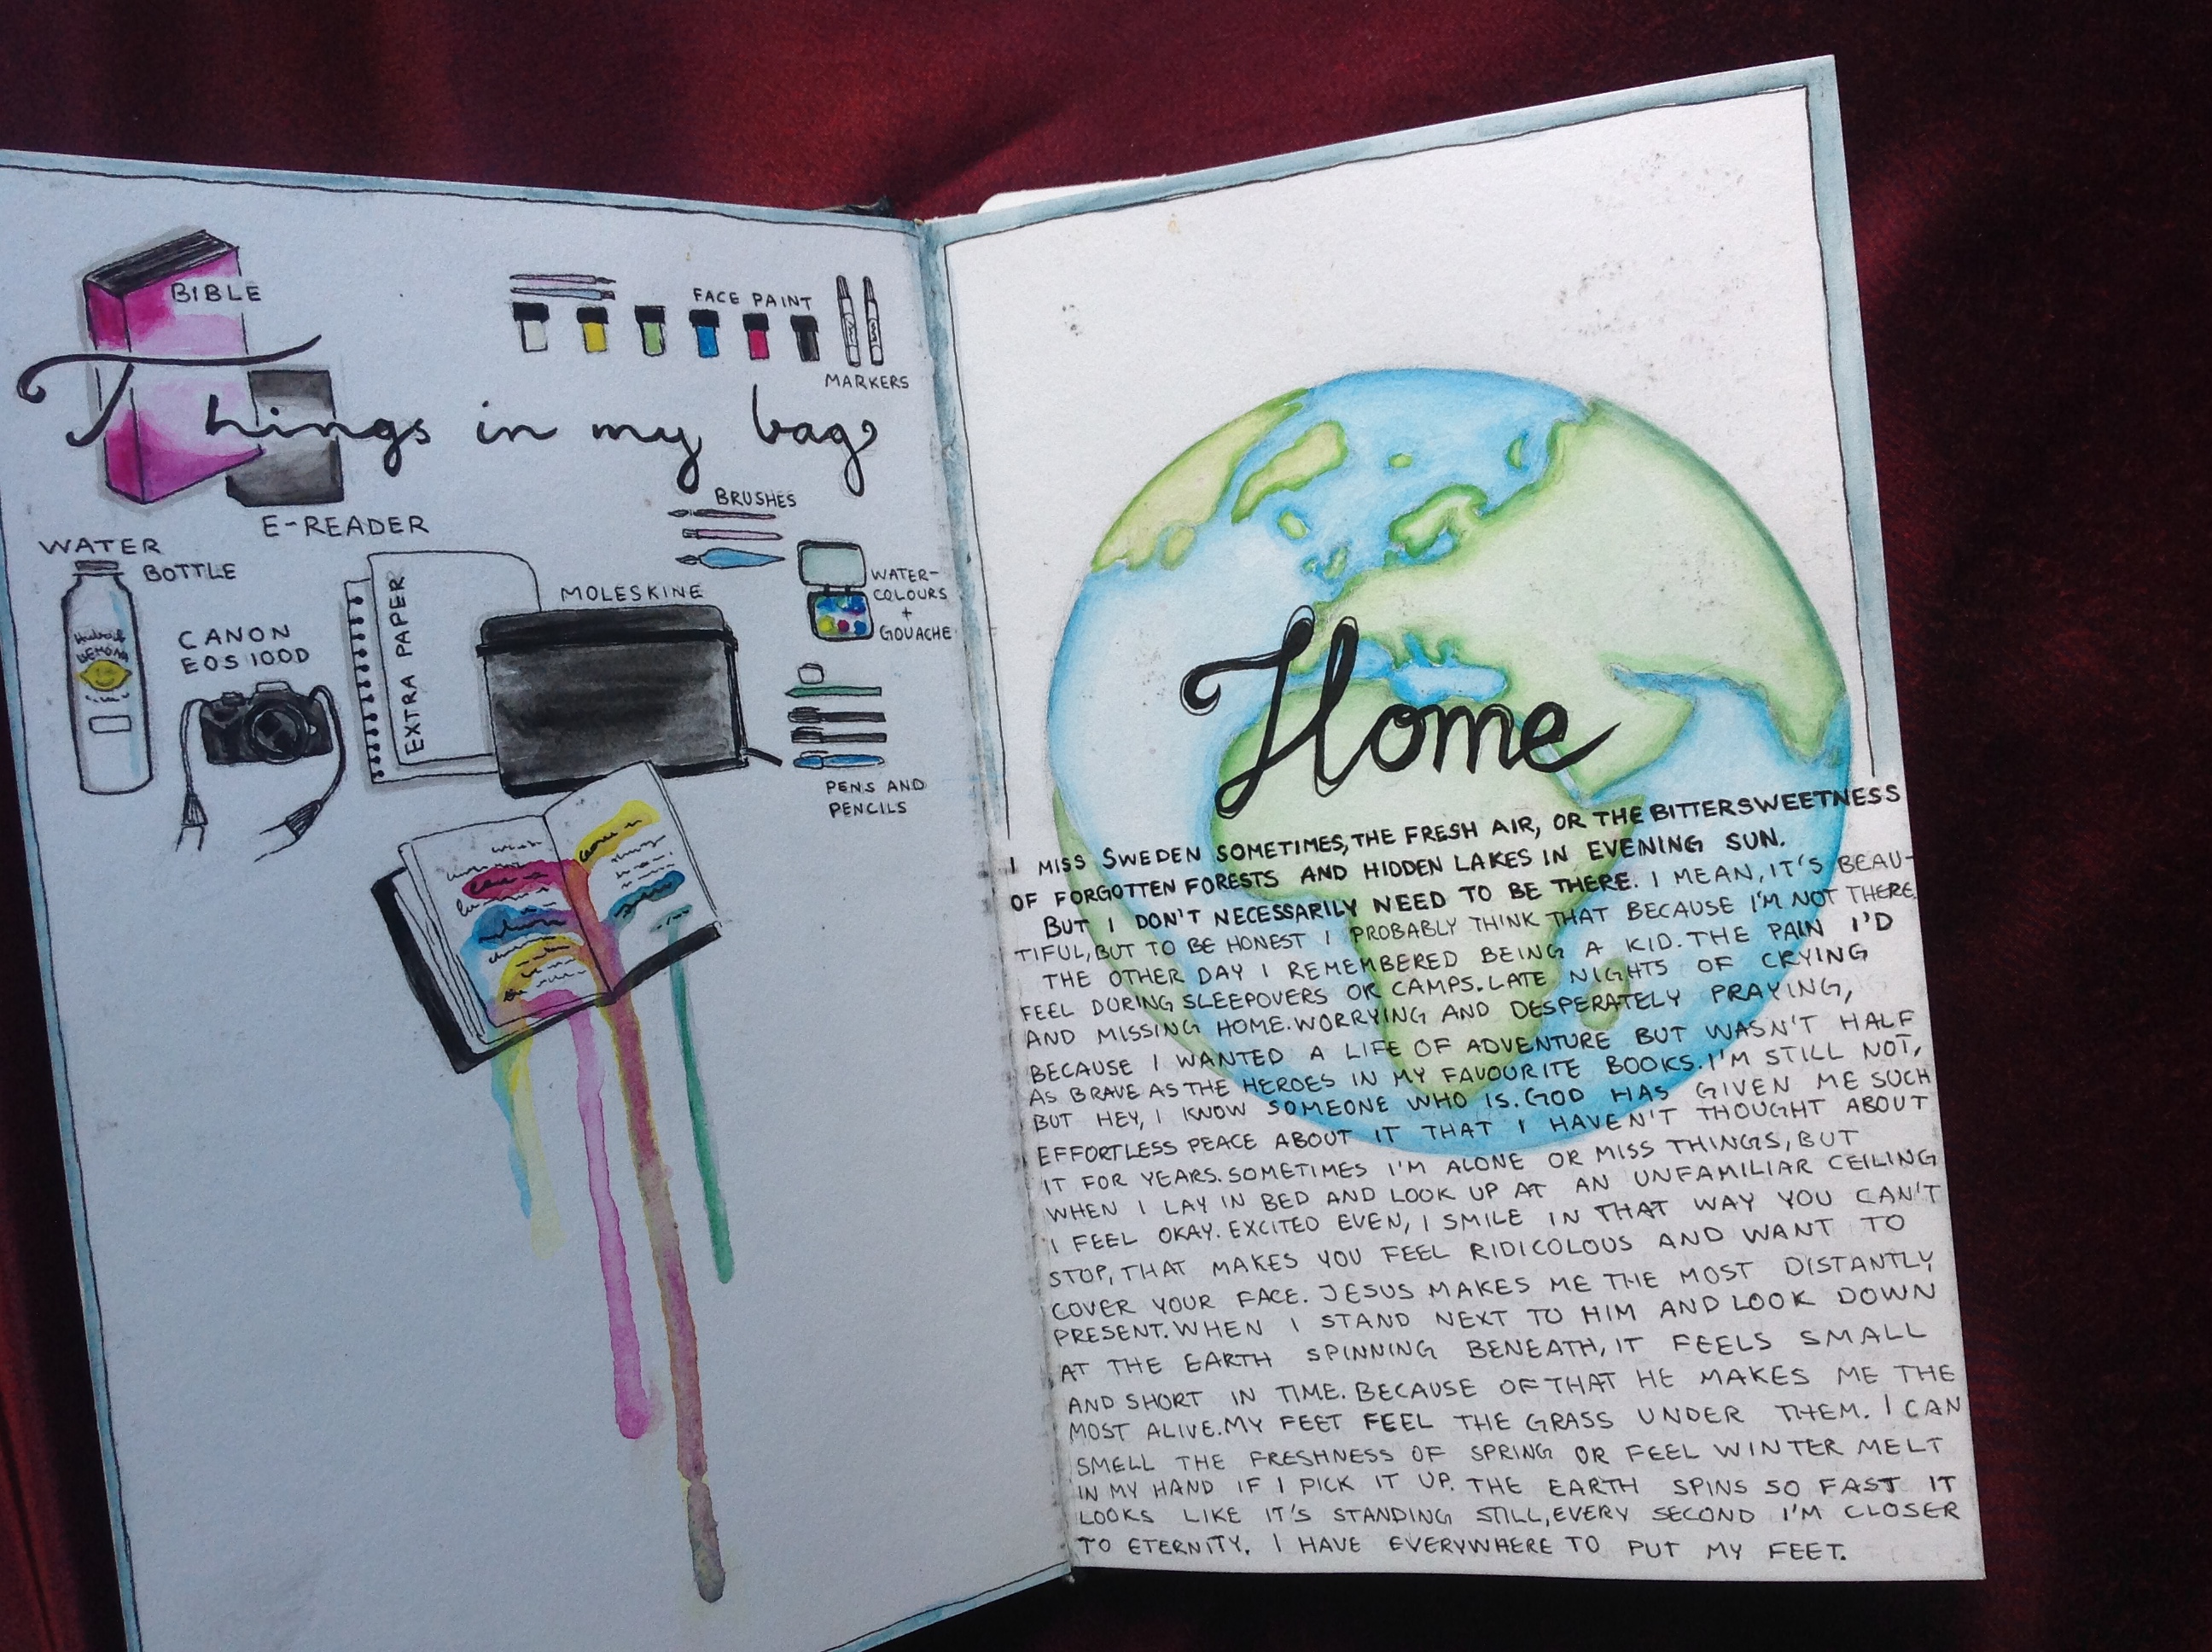 BIBLE
FACE PAINT
MARKERS
Things in my bag
E-READER
BRUSHES
WATER
BOTTLE
WATER-
COLOURS
+
GOUACHE
MOLESKINE
EXTRA PAPER
CANON
EOS 100D
PENS AND
PENCILS
Home
I MISS SWEDEN SOMETIMES, THE FRESH AIR, OR THE BITTERSWEETNESS
OF FORGOTTEN FORESTS AND HIDDEN LAKES IN EVENING SUN.
BUT I DON'T NECESSARILY NEED TO BE THERE. I MEAN, IT'S BEAU-
TIFUL, BUT TO BE HONEST I PROBABLY THINK THAT BECAUSE I'M NOT THERE.
THE OTHER DAY I REMEMBERED BEING A KID. THE PAIN I'D
FEEL DURING SLEEPOVERS OR CAMPS. LATE NIGHTS OF CRYING
AND MISSING HOME. WORRYING AND DESPERATELY PRAYING,
BECAUSE I WANTED A LIFE OF ADVENTURE BUT WASN'T HALF
AS BRAVE AS THE HEROES IN MY FAVOURITE BOOKS. I'M STILL NOT,
BUT HEY, I KNOW SOMEONE WHO IS. GOD HAS GIVEN ME SUCH
EFFORTLESS PEACE ABOUT IT THAT I HAVEN'T THOUGHT ABOUT
IT FOR YEARS. SOMETIMES I'M ALONE OR MISS THINGS, BUT
WHEN I LAY IN BED AND LOOK UP AT AN UNFAMILIAR CEILING
I FEEL OKAY. EXCITED EVEN, I SMILE IN THAT WAY YOU CAN'T
STOP, THAT MAKES YOU FEEL RIDICOLOUS AND WANT TO
COVER YOUR FACE. JESUS MAKES ME THE MOST DISTANTLY
PRESENT. WHEN I STAND NEXT TO HIM AND LOOK DOWN
AT THE EARTH SPINNING BENEATH, IT FEELS SMALL
AND SHORT IN TIME. BECAUSE OF THAT HE MAKES ME THE
MOST ALIVE. MY FEET FEEL THE GRASS UNDER THEM. I CAN
SMELL THE FRESHNESS OF SPRING OR FEEL WINTER MELT
IN MY HAND IF I PICK IT UP. THE EARTH SPINS SO FAST IT
LOOKS LIKE IT'S STANDING STILL, EVERY SECOND I'M CLOSER
TO ETERNITY. I HAVE EVERYWHERE TO PUT MY FEET.